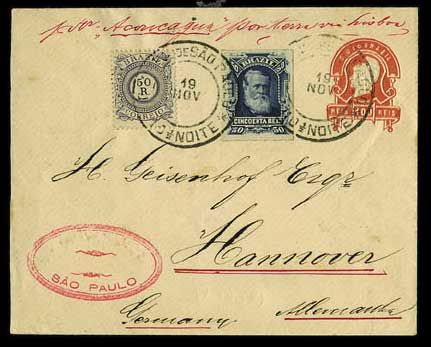 p. Str "Aconcagua" por terra via Lisboa
BRAZIL
50
R
CORREIO
BRAZIL
CINCOENTA REIS
50 50
100
REIS
DE SÃO PAULO
19
NOV
NOITE
19
NOV
NOITE
H. Geisenhof Esqr
Hannover
SÃO PAULO
Germany Allemanha